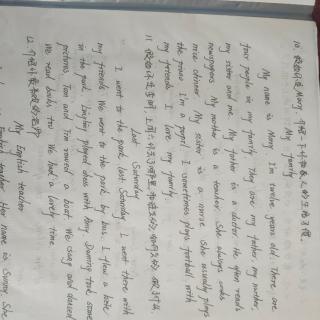 10. 假如你是Mary,介绍一下你和家人的生活习惯。
My family
My name is Mary I'm twelve years old. There are
four people in my family They are my father. my mother
my sister and me. My father is a doctor He often reads
newspapers My mother is a teacher She always cooks
nice dinner My sister is a nurse She usually plays
the piano I'm a pupil I sometimes plays football with
my friends. I love my family
11 假如你是李明,上周六
Last Saturday
I went to the park last Saturday. I went there with
my friends We went to the park by bus. I flew a kite
in the park. Lingling played chess with Amy Daming took some
pictures, Tom and Tim rowed a boat. We sang and danced
We read books too We had a lovely time
12 介绍你最
My English teacher
English teacher Her name is Sunny. She